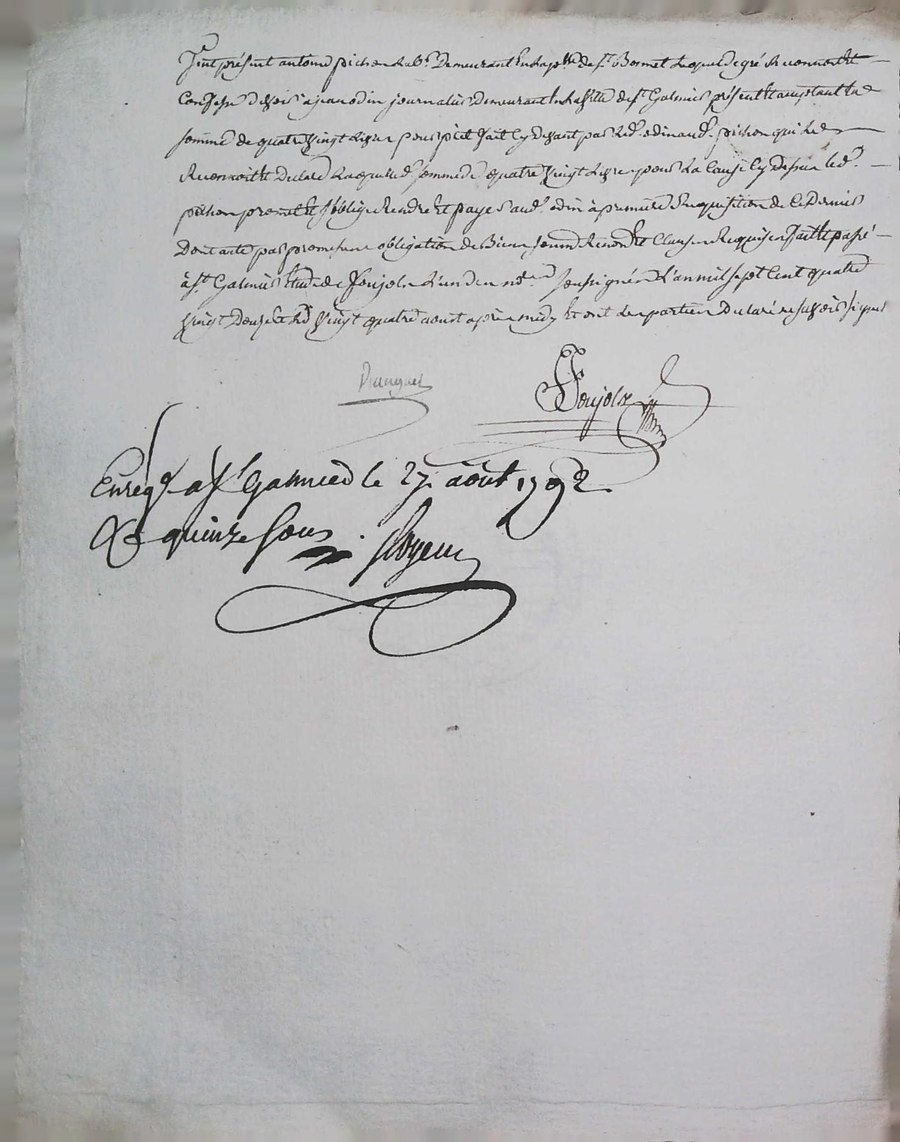 Fut présent antoine pichon lab.r Demeurant En la p.sse de s.t Bonnet lequel de gré Reconnoit et
Confesse devoir a jean odin journalier demeurant En la ville de s.t Galmier présent et acceptant la
somme de quatre vingt livres pour prêt fait cy devant par led. odin aud. pichon qui le
Reconnoit et Declare laquelle somme de quatre vingt livres pour la Cause cy dessus led.
pichon promet et s'oblige Rendre et payer aud. odin à première Requisition de ce Dernier
Dont acte par promesse obligation de Biens soum. Renon. et Clauses Requises fait et passé
à s.t Galmier Etude de Foujols l'un des no.res soussignés l'an mil sept Cent quatre
vingt Douze et le vingt quatre aoust après midy Et ont les parties Déclaré ne savoir signer
Foujols
Enreg.é a s.t Galmier le 27. août 1792
R. quinze sous